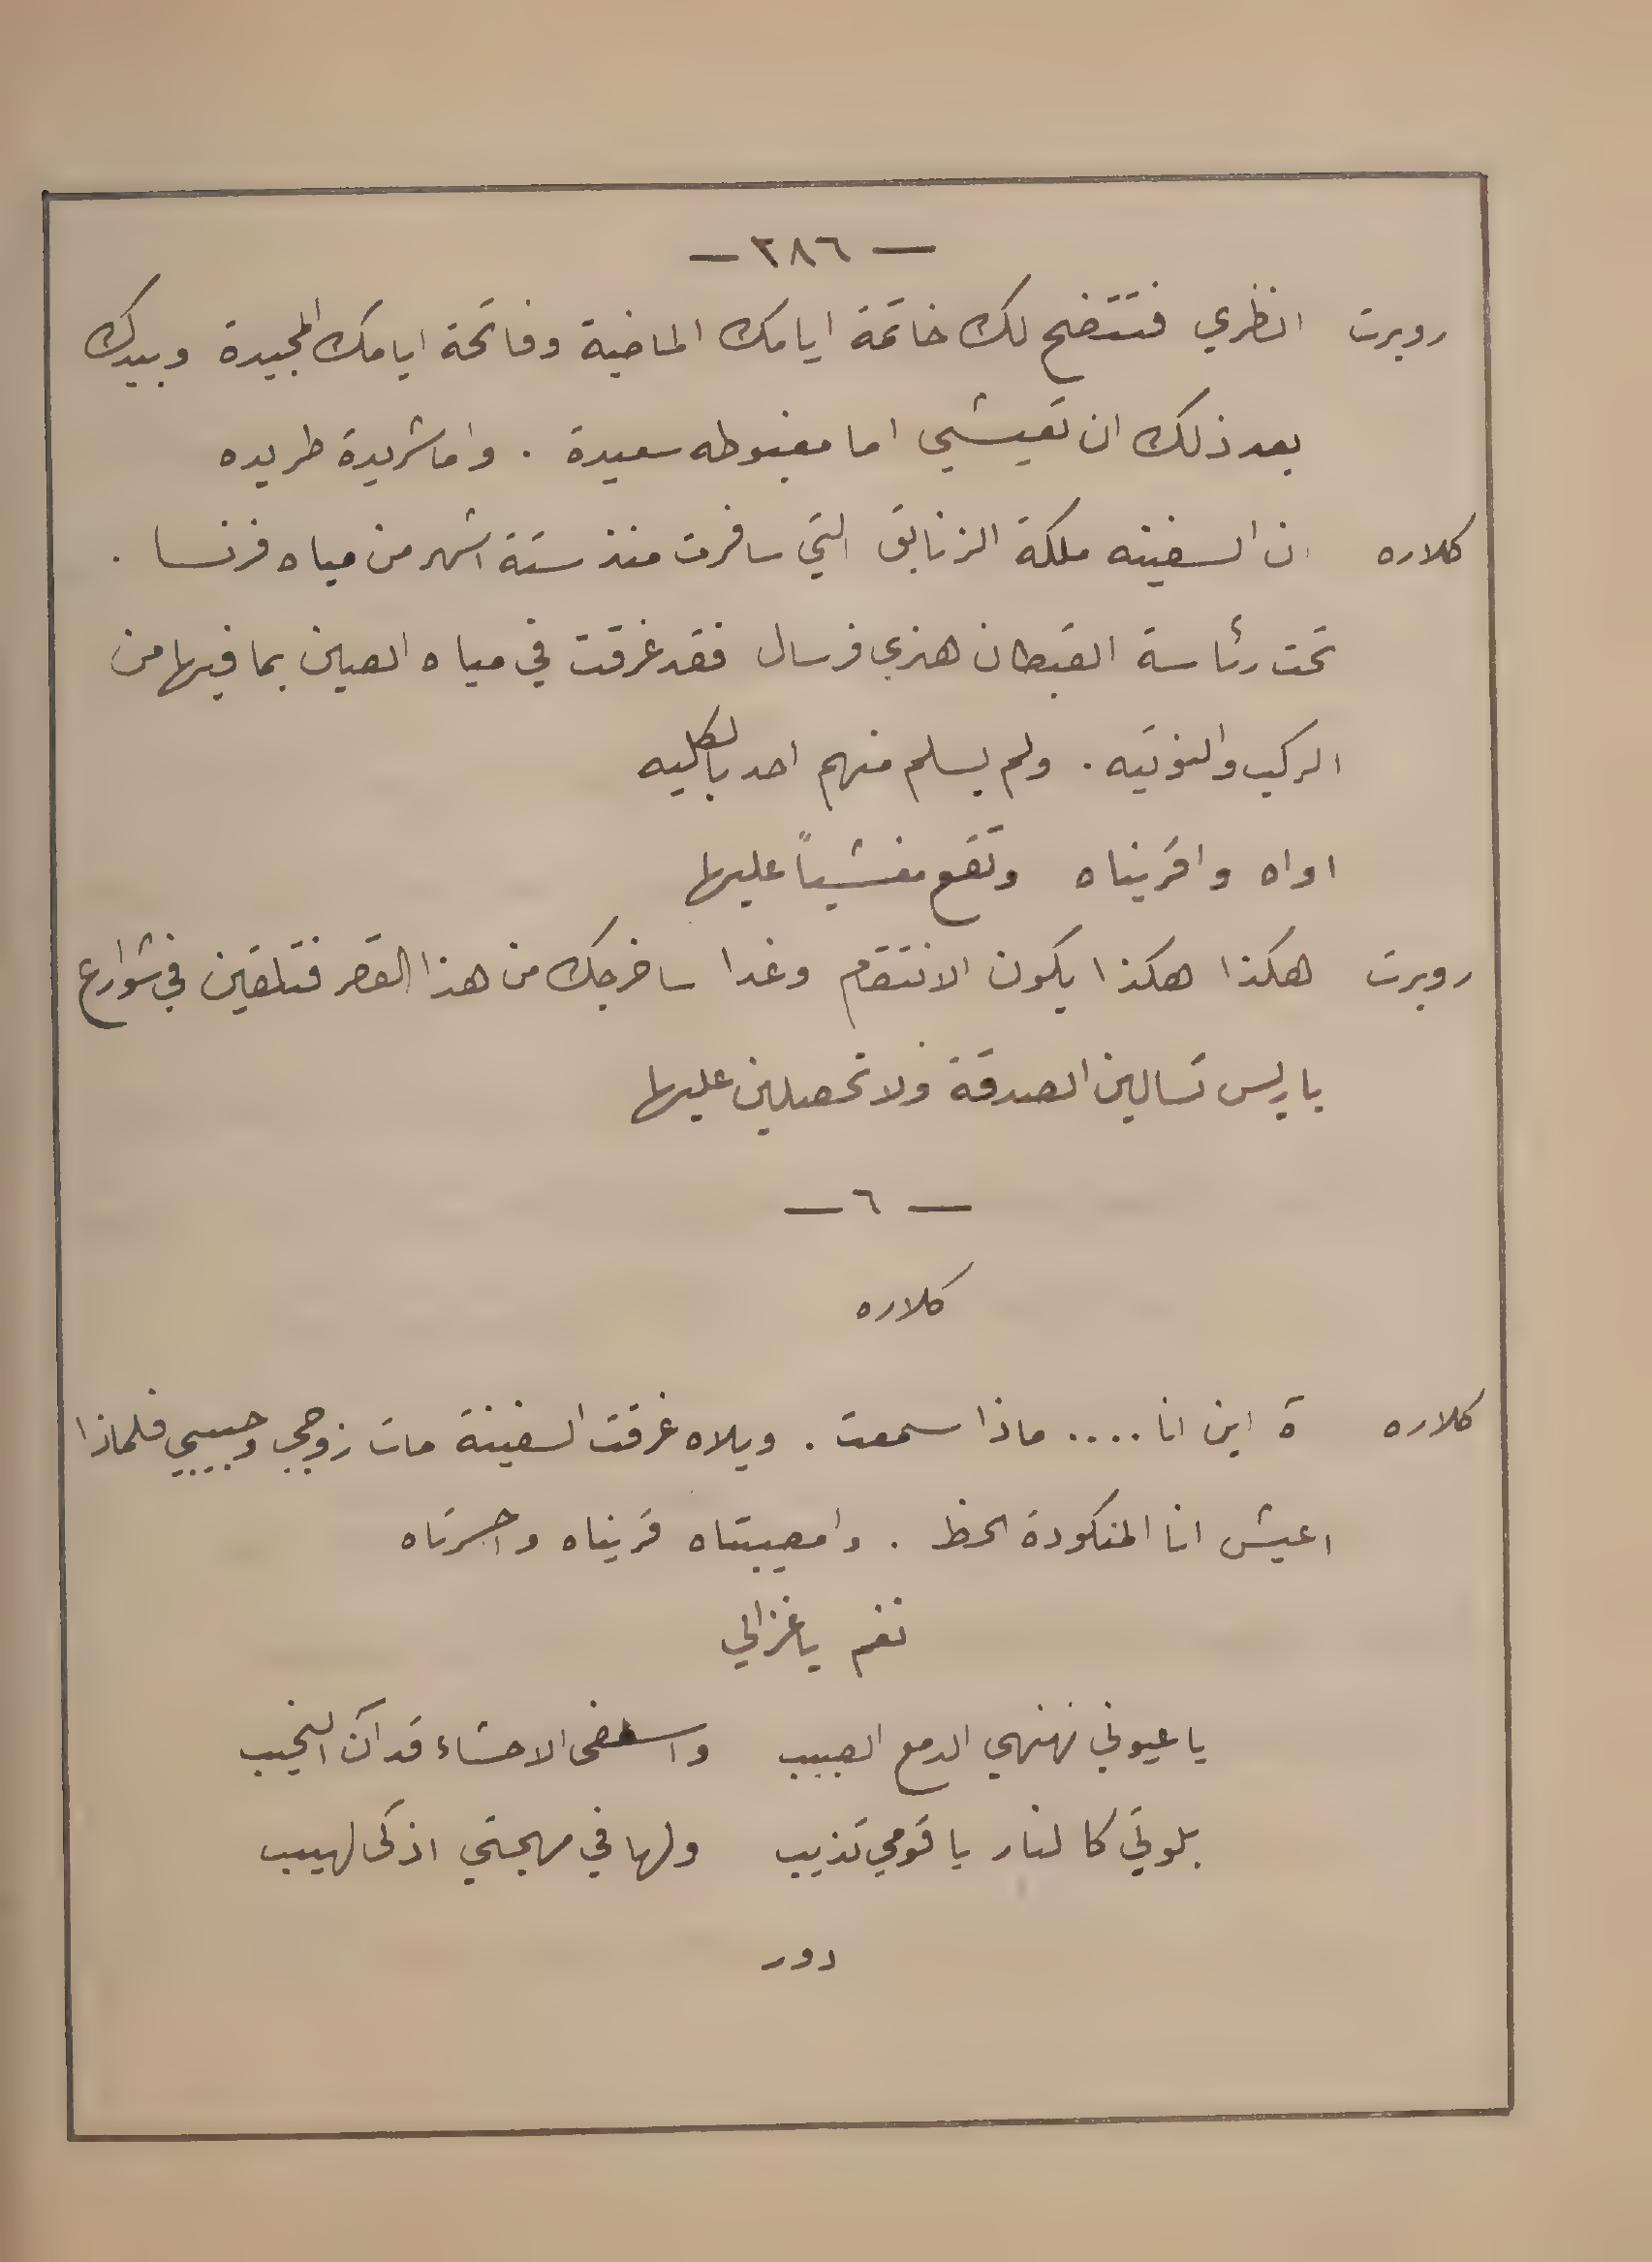 — ٢٨٦ —
روبرت انظري فتتضح لك خاتمة ايامك الماضية وفاتحة ايامك المجيدة وبيدك
بعد ذلك ان تعيشي اما مغبوطه سعيدة . واما شريدة طريده
كلاره ان السفينه ملكة الزنابق التي سافرت منذ ستة اشهر من مياه فرنسا .
تحت رئاسة القبطان هنري فرسال فقد غرقت في مياه الصين بما فيها من
الركب والنوتيه . ولم يسلم منهم احد بالكليه
اواه واقريناه وتقع مغشياً عليها
روبرت هكذا هكذا يكون الانتقام وغدا ساخرجك من هذا القصر فتلقين في شوارع
باريس تسالين الصدقة ولا تحصلين عليها
— ٦ —
كلاره
كلاره ة اين انا .... ماذا سمعت . ويلاه غرقت السفينة مات زوجي وحبيبي فلماذا
اعيش انا المنكودة الحظ . وامصيبتاه قريناه واحسرتاه
نغم يا غزالي
يا عيوني نهنهي الدمع الصبيب الاحشاء قد آن النحيب
بلوتي كالنار يا قومي تذيب ولها في مهجتي اذكى لهيب
دور